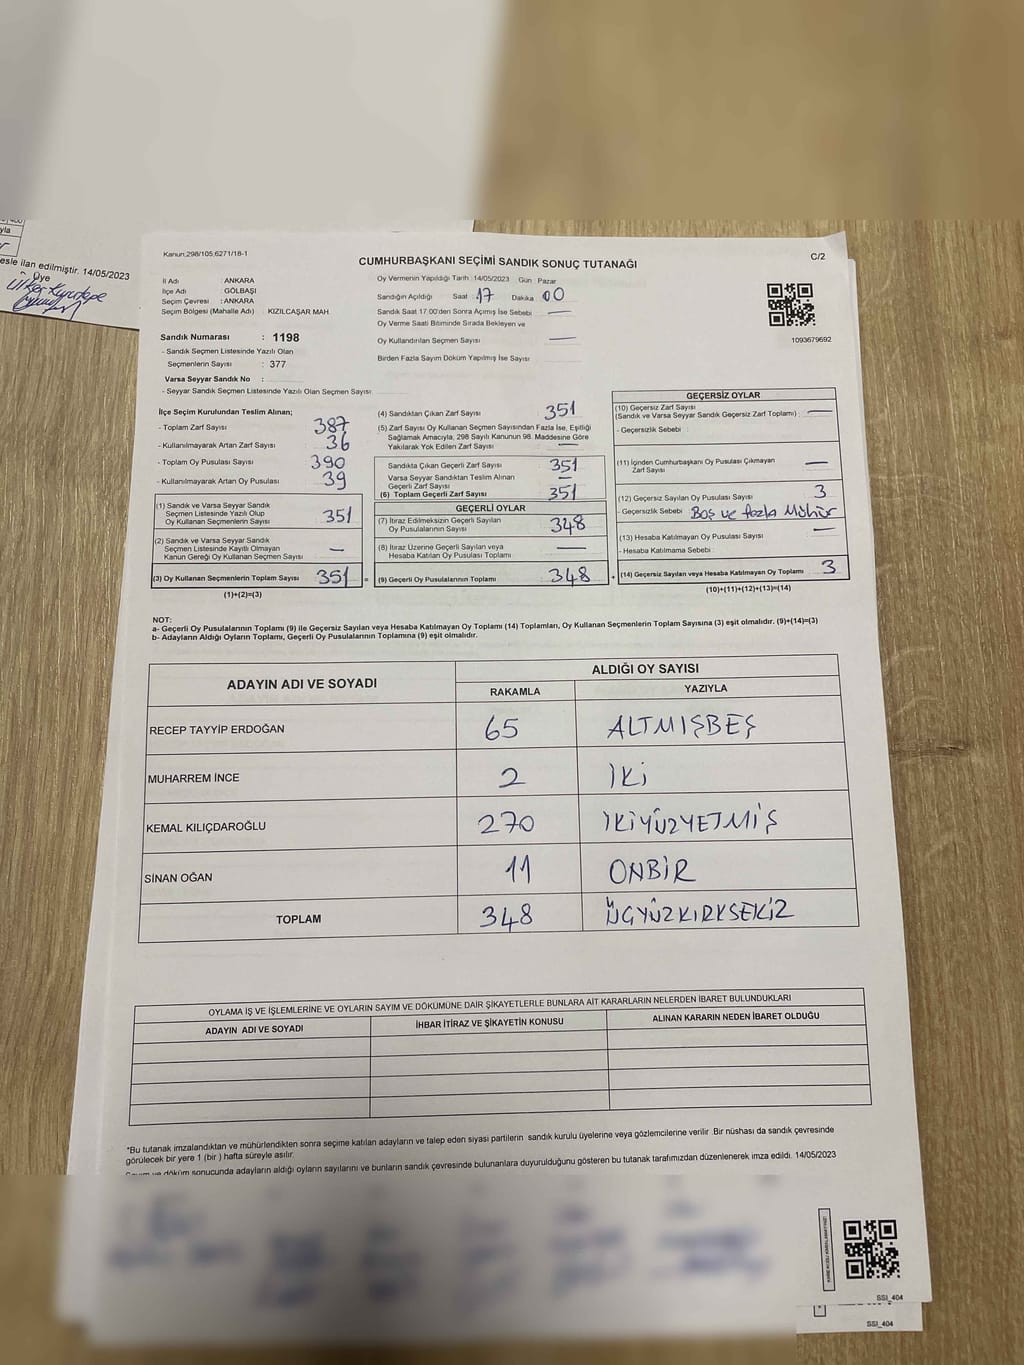 yla
esle ilan edilmiştir. 14/05/2023
Üye
Kanun;298/105;6271/18-1
CUMHURBAŞKANI SEÇİMİ SANDIK SONUÇ TUTANAĞI
C/2
İl Adı : ANKARA
İlçe Adı : GÖLBAŞI
Seçim Çevresi : ANKARA
Seçim Bölgesi (Mahalle Adı) : KIZILCAŞAR MAH.
Sandık Numarası : 1198
- Sandık Seçmen Listesinde Yazılı Olan
Seçmenlerin Sayısı : 377
Varsa Seyyar Sandık No :
- Seyyar Sandık Seçmen Listesinde Yazılı Olan Seçmen Sayısı:
Oy Vermenin Yapıldığı Tarih :14/05/2023 Gün : Pazar
Sandığın Açıldığı Saat : 17 Dakika : 00
Sandık Saat 17.00'den Sonra Açımış İse Sebebi —
Oy Verme Saati Bitiminde Sırada Bekleyen ve
Oy Kullandırılan Seçmen Sayısı —
Birden Fazla Sayım Döküm Yapılmış İse Sayısı
1093679692
İlçe Seçim Kurulundan Teslim Alınan;
- Toplam Zarf Sayısı 387
- Kullanılmayarak Artan Zarf Sayısı 36
- Toplam Oy Pusulası Sayısı 390
- Kullanılmayarak Artan Oy Pusulası 39
(1) Sandık ve Varsa Seyyar Sandık
Seçmen Listesinde Yazılı Olup
Oy Kullanan Seçmenlerin Sayısı 351
(2) Sandık ve Varsa Seyyar Sandık
Seçmen Listesinde Kayıtlı Olmayan
Kanun Gereği Oy Kullanan Seçmen Sayısı —
(3) Oy Kullanan Seçmenlerin Toplam Sayısı 351 =
(1)+(2)=(3)
(4) Sandıktan Çıkan Zarf Sayısı 351
(5) Zarf Sayısı Oy Kullanan Seçmen Sayısından Fazla İse, Eşitliği
Sağlamak Amacıyla, 298 Sayılı Kanunun 98. Maddesine Göre
Yakılarak Yok Edilen Zarf Sayısı —
Sandıkta Çıkan Geçerli Zarf Sayısı 351
Varsa Seyyar Sandıktan Teslim Alınan
Geçerli Zarf Sayısı —
(6) Toplam Geçerli Zarf Sayısı 351
GEÇERLİ OYLAR
(7) İtiraz Edilmeksizin Geçerli Sayılan
Oy Pusulalarının Sayısı 348
(8) İtiraz Üzerine Geçerli Sayılan veya
Hesaba Katılan Oy Pusulası Toplamı —
(9) Geçerli Oy Pusulalarının Toplamı 348 +
GEÇERSİZ OYLAR
(10) Geçersiz Zarf Sayısı
(Sandık ve Varsa Seyyar Sandık Geçersiz Zarf Toplamı) : —
- Geçersizlik Sebebi :
(11) İçinden Cumhurbaşkanı Oy Pusulası Çıkmayan
Zarf Sayısı —
(12) Geçersiz Sayılan Oy Pusulası Sayısı 3
- Geçersizlik Sebebi Boş ve fazla Mühür
(13) Hesaba Katılmayan Oy Pusulası Sayısı —
- Hesaba Katılmama Sebebi
(14) Geçersiz Sayılan veya Hesaba Katılmayan Oy Toplamı 3
(10)+(11)+(12)+(13)=(14)
NOT:
a- Geçerli Oy Pusulalarının Toplamı (9) ile Geçersiz Sayılan veya Hesaba Katılmayan Oy Toplamı (14) Toplamları, Oy Kullanan Seçmenlerin Toplam Sayısına (3) eşit olmalıdır. (9)+(14)=(3)
b- Adayların Aldığı Oyların Toplamı, Geçerli Oy Pusulalarının Toplamına (9) eşit olmalıdır.
ADAYIN ADI VE SOYADI
ALDIĞI OY SAYISI
RAKAMLA YAZIYLA
RECEP TAYYİP ERDOĞAN 65 ALTMIŞBEŞ
MUHARREM İNCE 2 İKİ
KEMAL KILIÇDAROĞLU 270 İKİYÜZYETMİŞ
SİNAN OĞAN 11 ONBİR
TOPLAM 348 ÜÇYÜZKIRKSEKİZ
OYLAMA İŞ VE İŞLEMLERİNE VE OYLARIN SAYIM VE DÖKÜMÜNE DAİR ŞİKAYETLERLE BUNLARA AİT KARARLARIN NELERDEN İBARET BULUNDUKLARI
ADAYIN ADI VE SOYADI İHBAR İTİRAZ VE ŞİKAYETİN KONUSU ALINAN KARARIN NEDEN İBARET OLDUĞU
*Bu tutanak imzalandıktan ve mühürlendikten sonra seçime katılan adayların ve talep eden siyasi partilerin sandık kurulu üyelerine veya gözlemcilerine verilir. Bir nüshası da sandık çevresinde
görülecek bir yere 1 (bir ) hafta süreyle asılır.
Sayım ve döküm sonucunda adayların aldığı oyların sayılarını ve bunların sandık çevresinde bulunanlara duyurulduğunu gösteren bu tutanak tarafımızdan düzenlenerek imza edildi. 14/05/2023
SSI_404
SSI_404